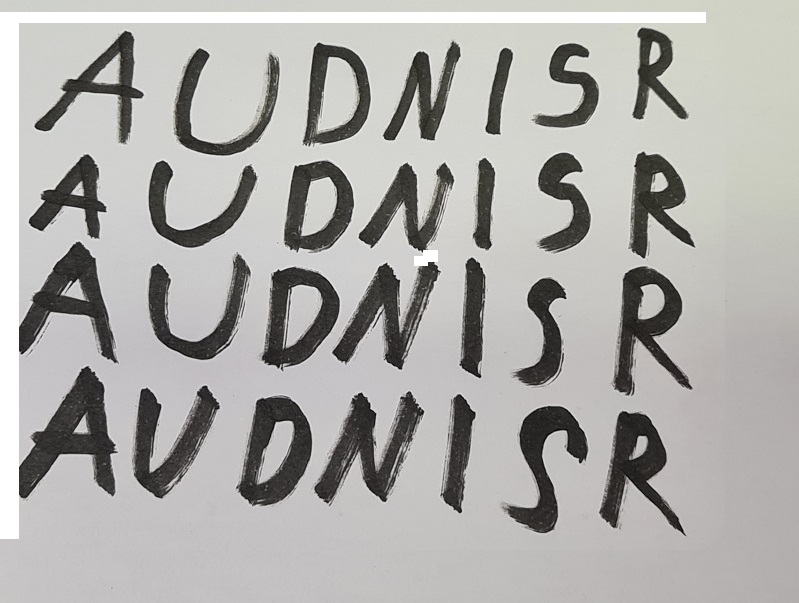 AUDNISR
AUDNISR
AUDNISR
AUDNISR